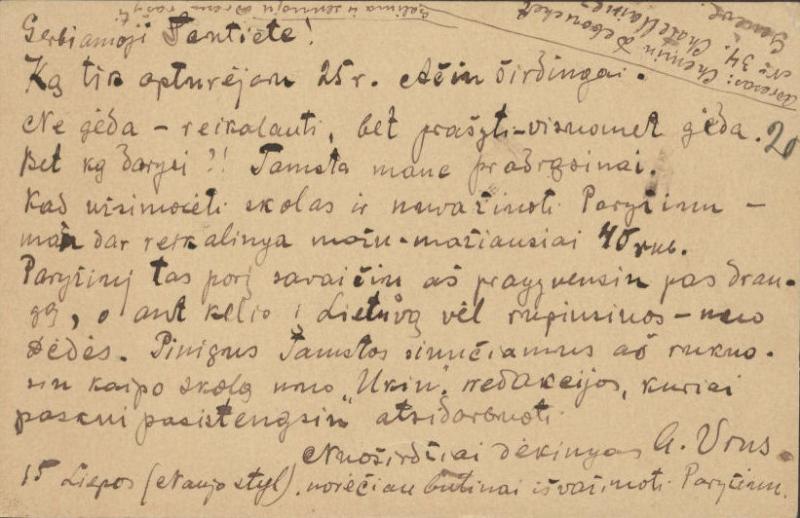 Gerbiamoji Tamtiete!
Ką tik apturėjau 25 r. Ačiu širdingai.
Ne gėda – reikalauti, bet prašyti – visuomet gėda.
Bet ką darysi?! Tamsta mane pradrąsinai.
Kad užsimokėti skolas ir nuvažiuoti Paryžiun –
man dar reikalinga mažu-mažiausiai 40 rub.
Paryžiuj tas porą savaičiu aš pragyvensiu pas drau-
gą, o ant kelio į Lietuvą vėl rupinsiuos – nuo
Dėdės. Pinigus Tamstos siunčiamus aš ruko-
siu kaipo skolą nuo „Ukin." redakcijos, kuriai
paskui pasistengsiu atsidarbuoti.
Nuoširdžiai dėkingas
15 Liepos (Naujo styl). norėčiau butinai išvažiuoti Paryžiun.
Adresas: Chemin
No 34. Chatelaine
Genève.
20